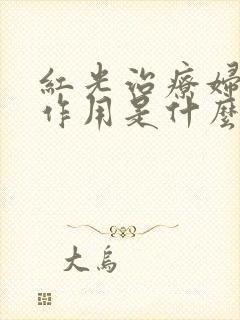 紅光治療婦
作用是什麼
大鳥